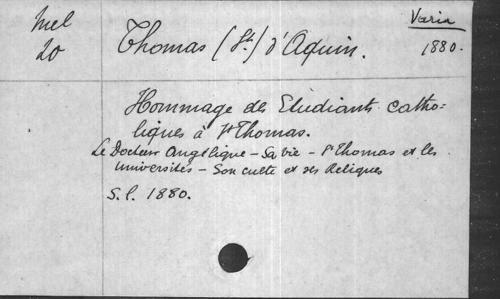 Mel
20
Thomas (St.) d'Aquin.
Varia
1880.
Hommage des Etudiants catho-
liques à St Thomas.
Le Docteur Angélique - Sa vie - St Thomas et les
Universités - Son culte et ses Reliques
S.l. 1880.